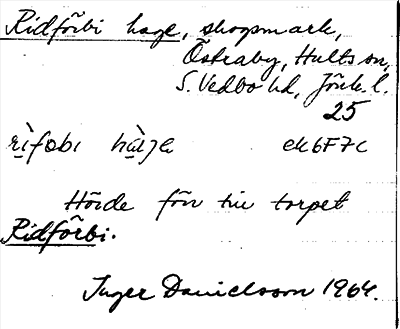 Ridförbi hage, skogsmark,
Östraby, Hults sn,
S. Vedbo hd, Jönk. l.
25
ek 6F7c
Hörde förr till torpet
Ridförbi.
Inger Danielsson 1964.